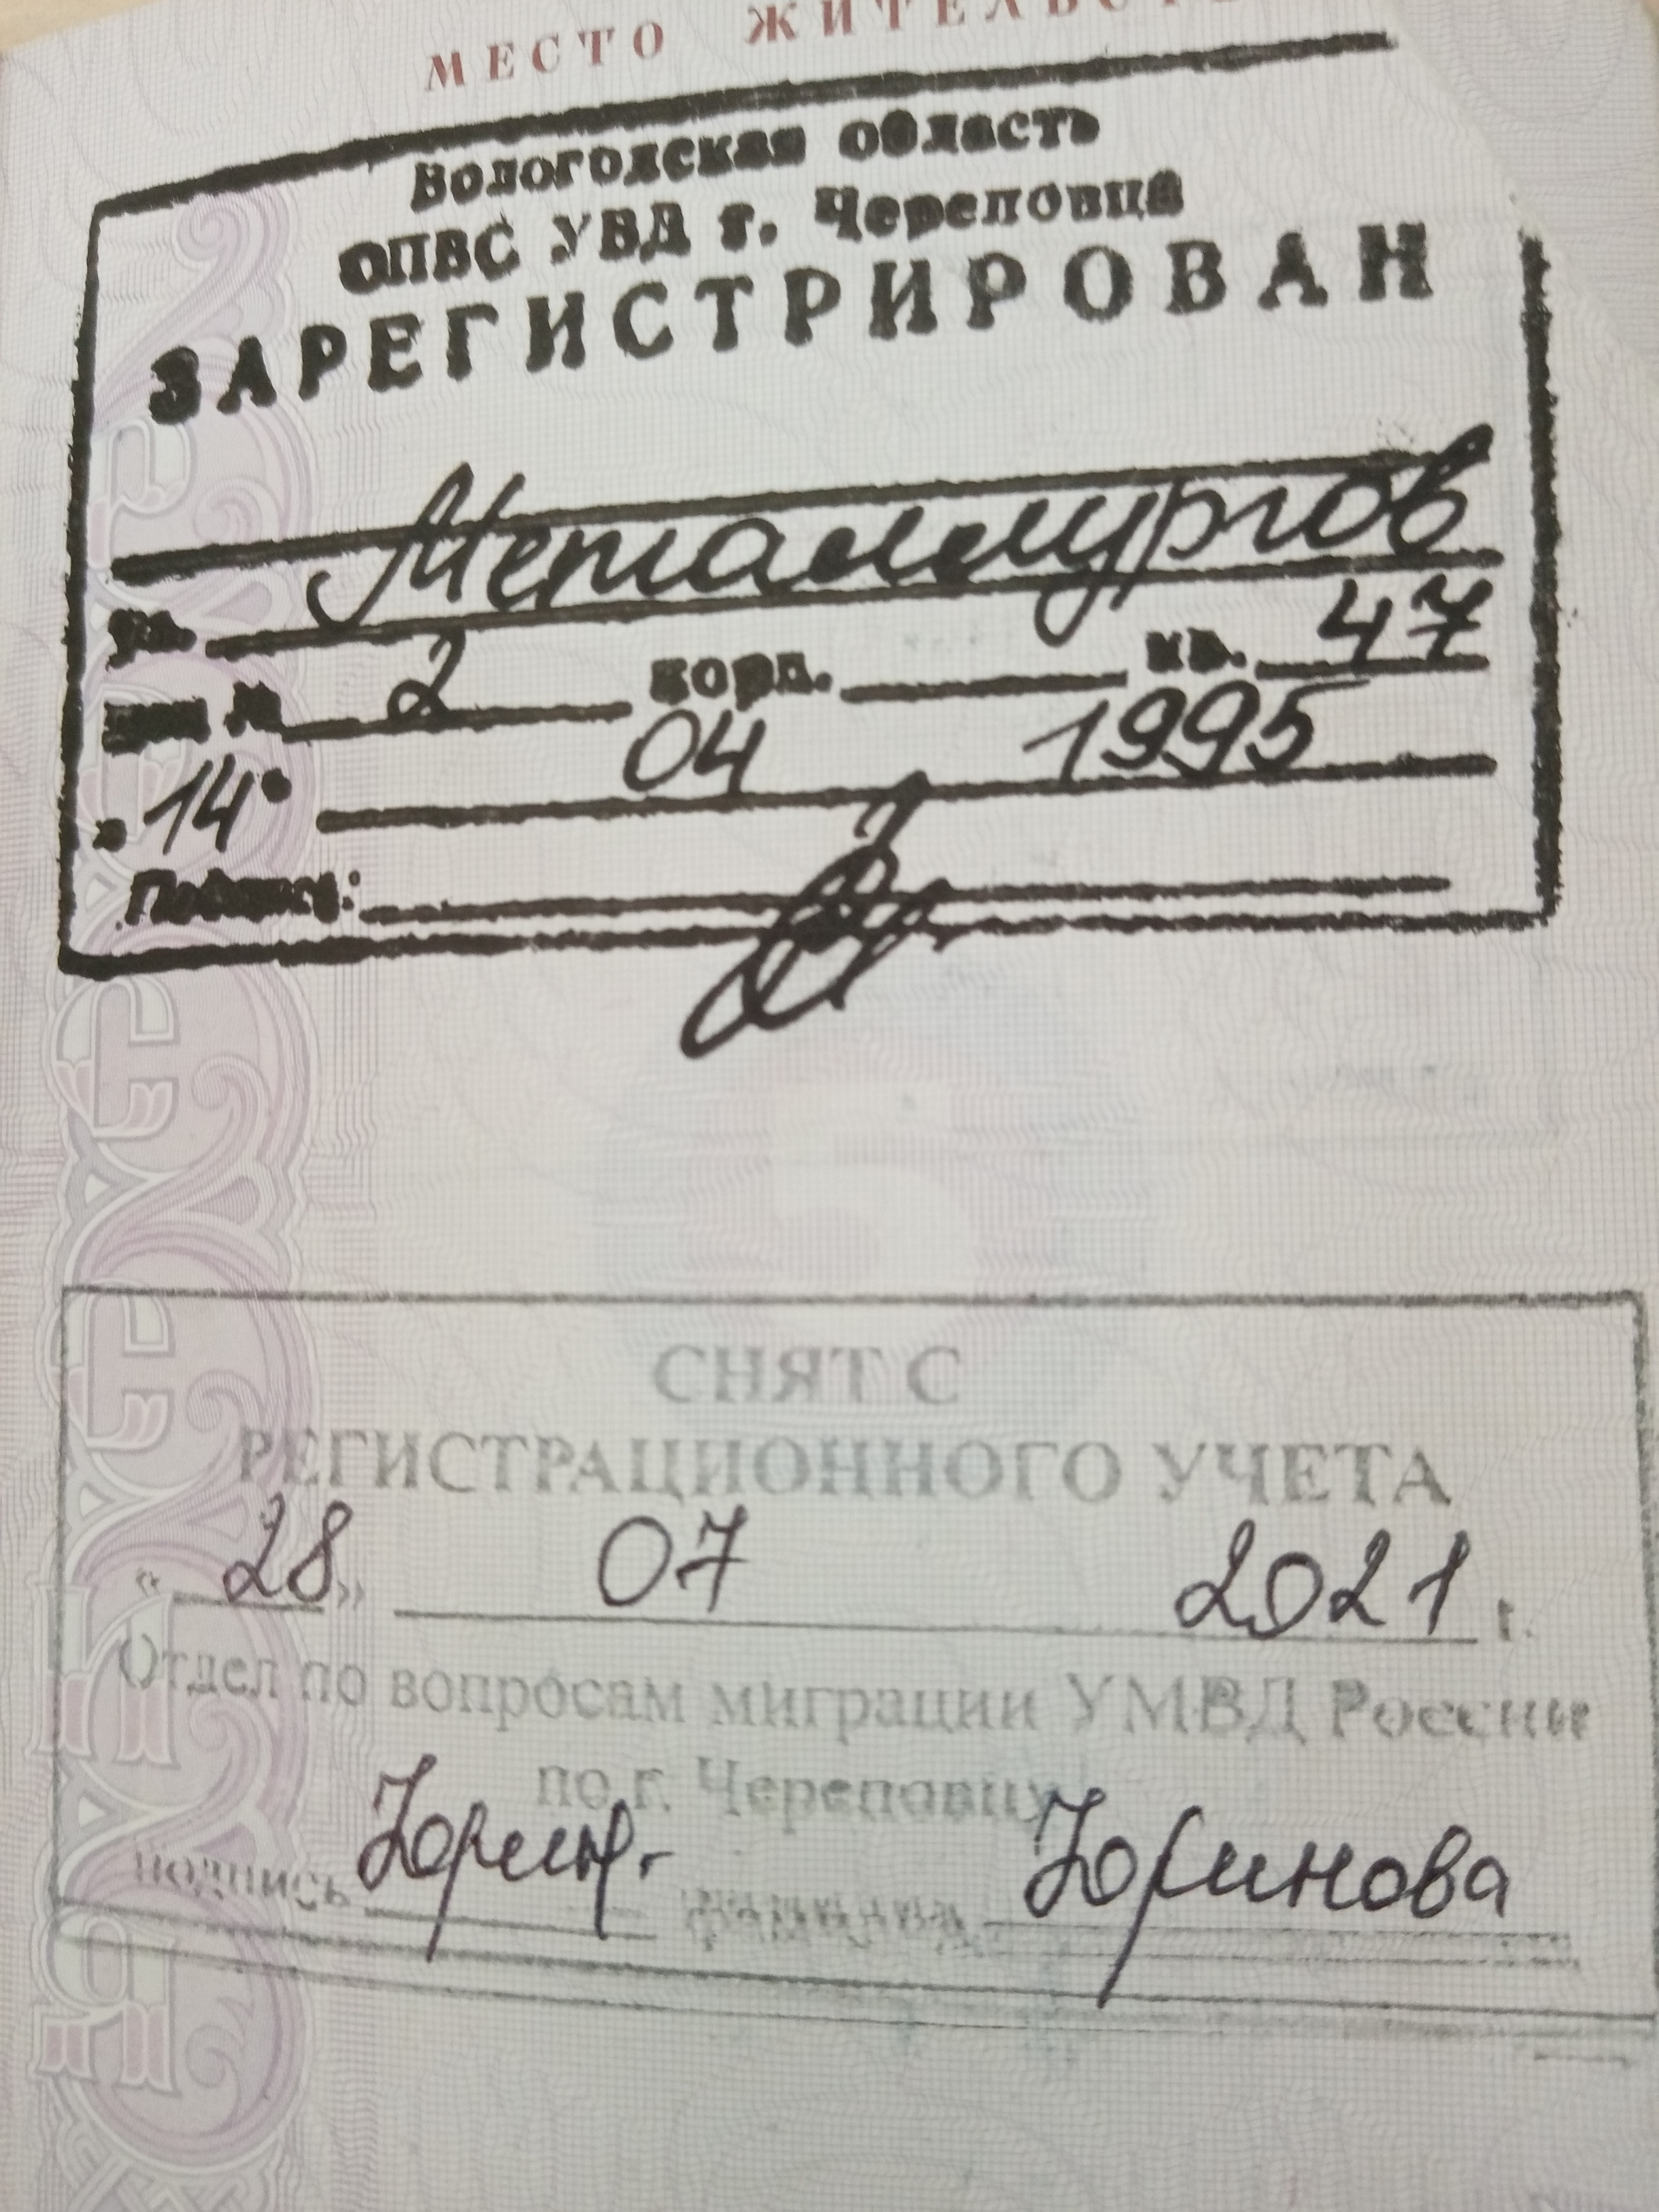 МЕСТО ЖИТЕЛЬСТВ
Вологодская область
ОПВС УВД г. Череповца
ЗАРЕГИСТРИРОВАН
Металлургов
ул.
дом № 2 корп. кв. 47
"14" 04 1995
Подпись:
СНЯТ С
РЕГИСТРАЦИОННОГО УЧЕТА
« 28 » 07 2021 г.
Отдел по вопросам миграции УМВД России
по г. Череповцу
подпись Юрин. Юринова